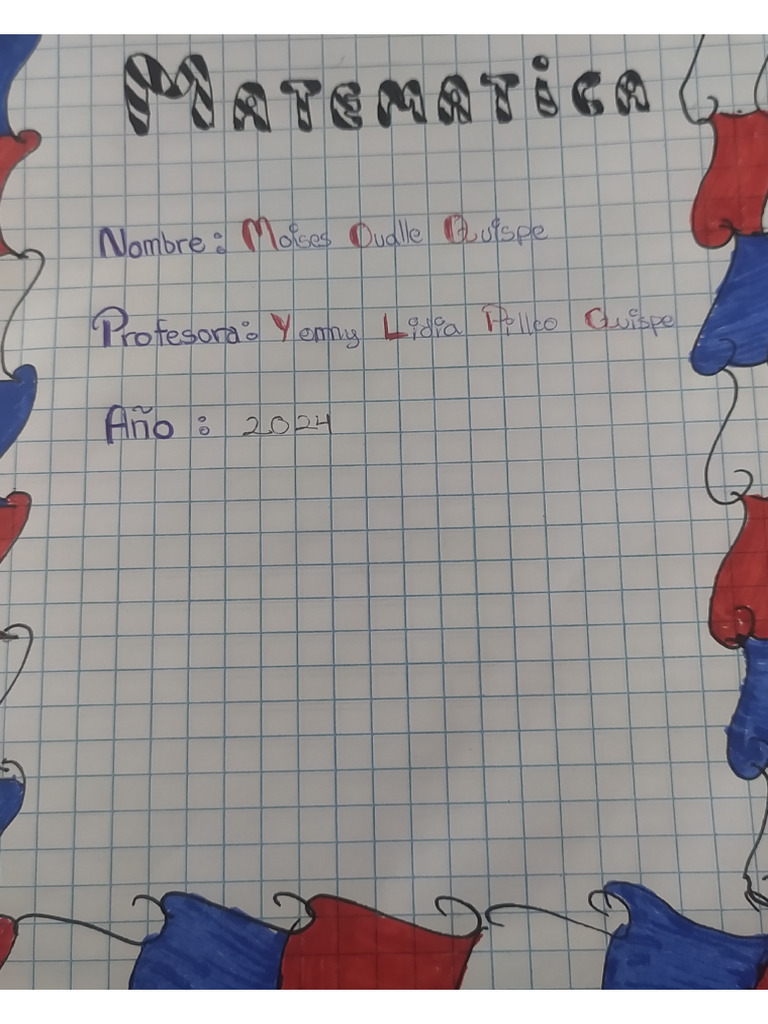 MATEMATiCA
Nombre: Moises Oualle Quispe
Profesora: Yenny Lidia Pillco Quispe
Año : 2024